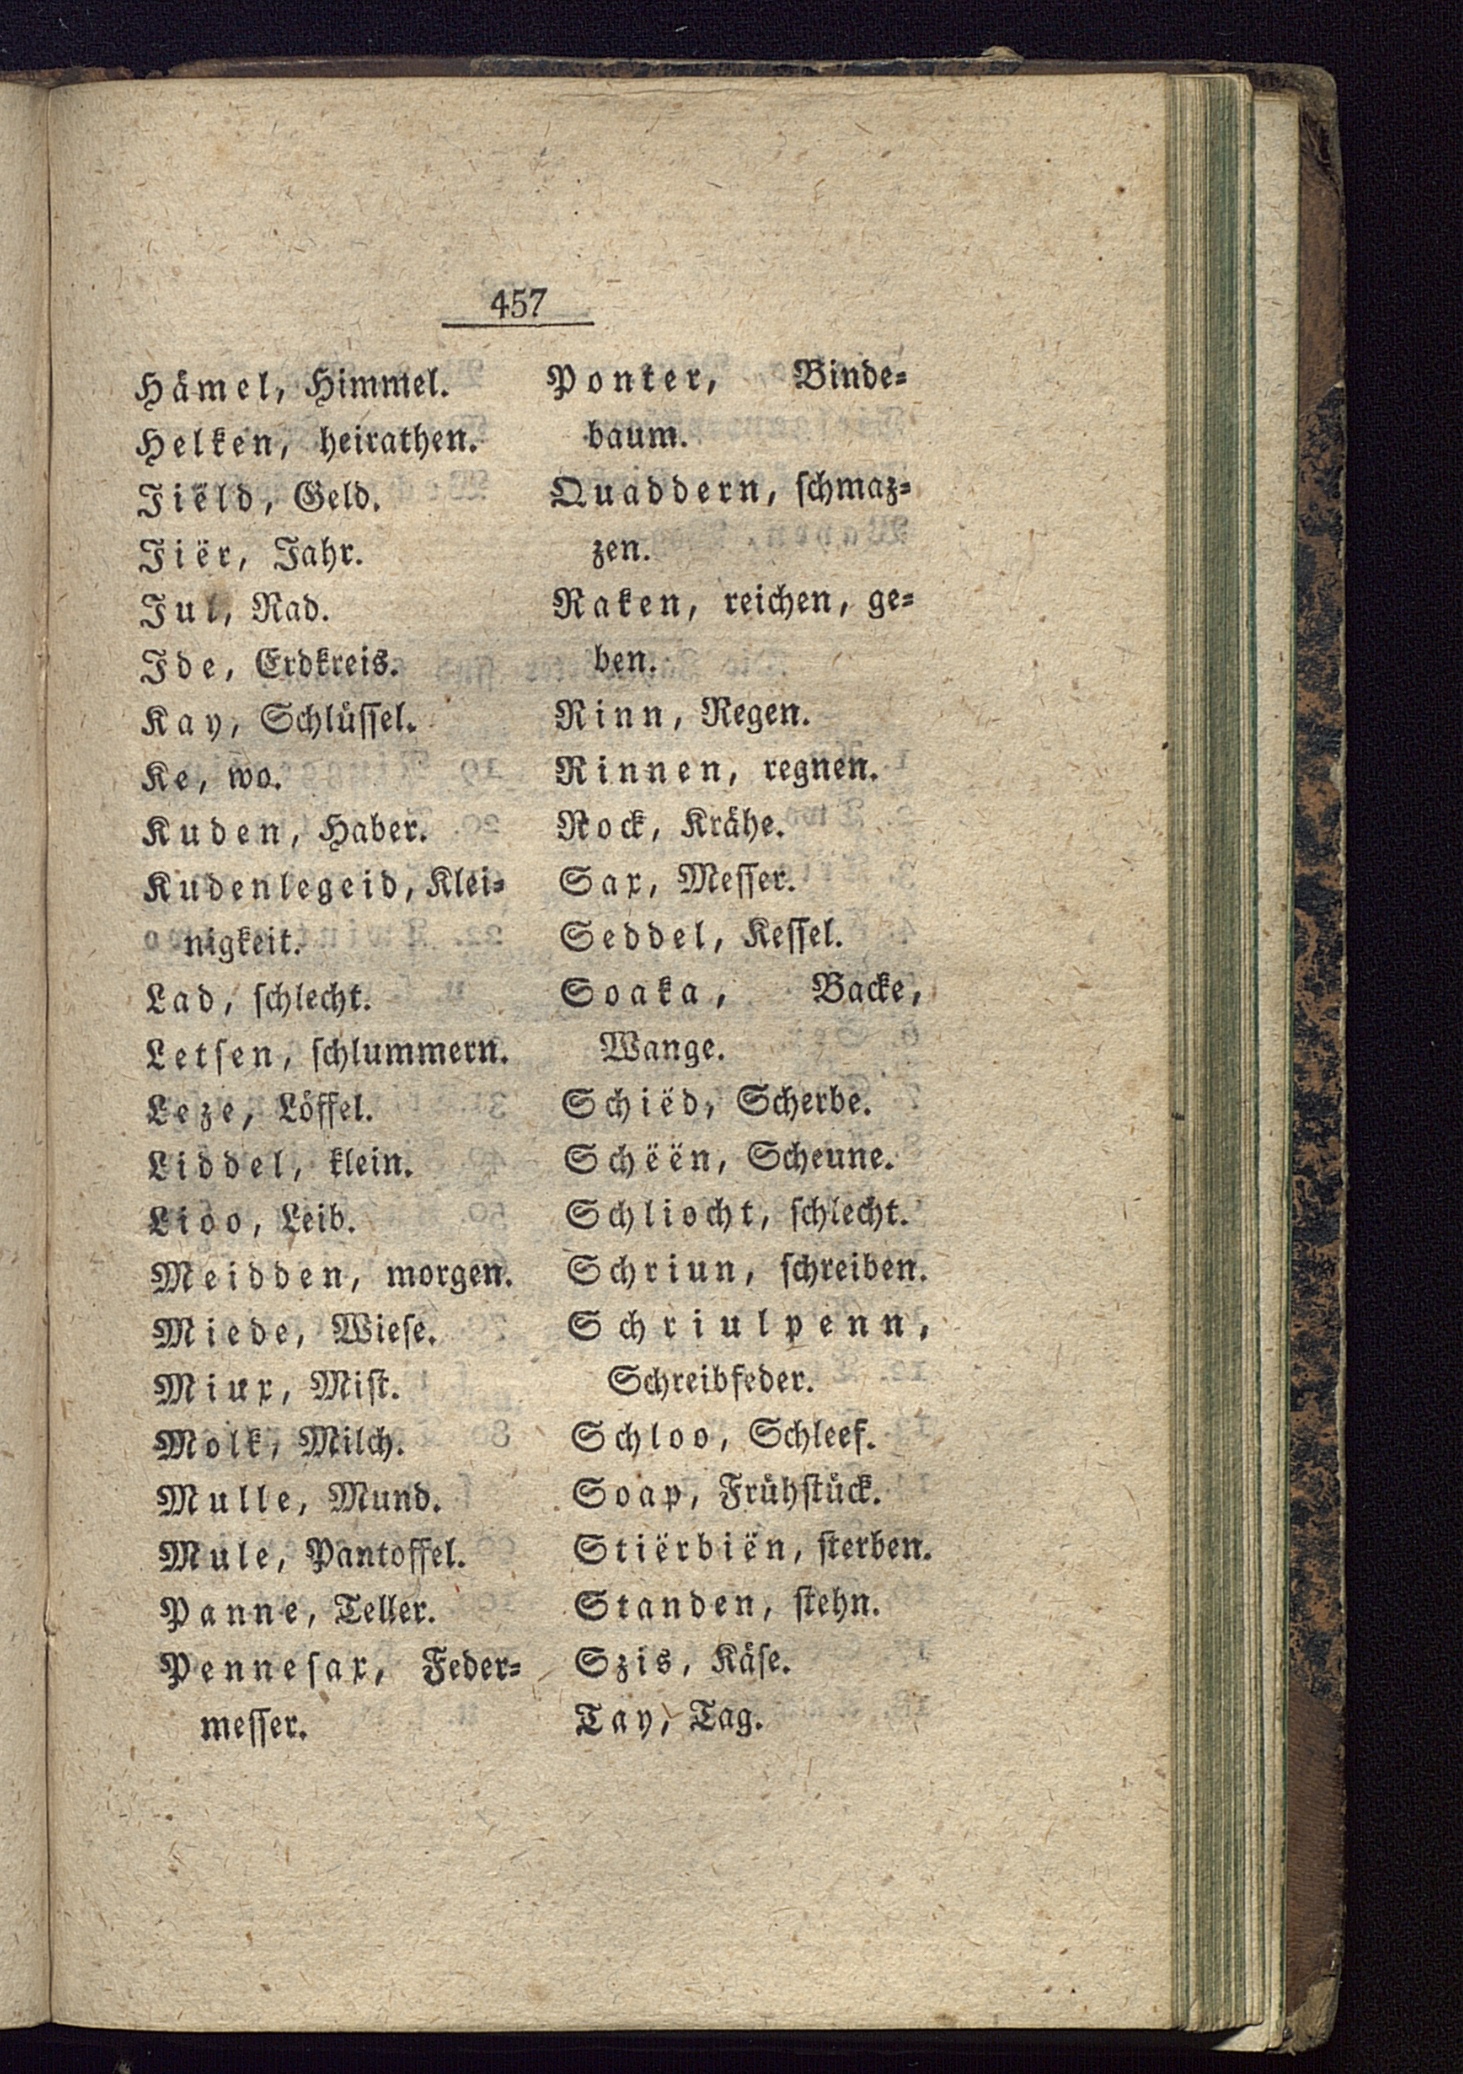 457
Hämel, Himmel.
Helken, heirathen.
Jiëld, Geld.
Jiër, Jahr.
Jul, Rad.
Ide, Erdkreis.
Kay, Schlüſſel.
Ke, wo.
Kuden, Haber.
Kudenlegeid, Klei⸗
nigkeit.
Lad, ſchlecht.
Letſen, ſchlummern.
Leze, Löffel.
Liddel, klein.
Lioo, Leib.
Meidden, morgen.
Miede, Wieſe.
Miux, Miſt.
Molk, Milch.
Mulle, Mund.
Mule, Pantoffel.
Panne, Teller.
Penneſax, Feder⸗
meſſer.
Ponter, Binde⸗
baum.
Quaddern, ſchmaz⸗
zen.
Raken, reichen, ge⸗
ben.
Rinn, Regen.
Rinnen, regnen.
Rock, Krähe.
Sax, Meſſer.
Seddel, Keſſel.
Soaka, Backe,
Wange.
Schiëd, Scherbe.
Schëën, Scheune.
Schliocht, ſchlecht.
Schriun, ſchreiben.
Schriulpenn,
Schreibfeder.
Schloo, Schleef.
Soap, Frühſtück.
Stiërbiën, ſterben.
Standen, ſtehn.
Szis, Käſe.
Tay, Tag.